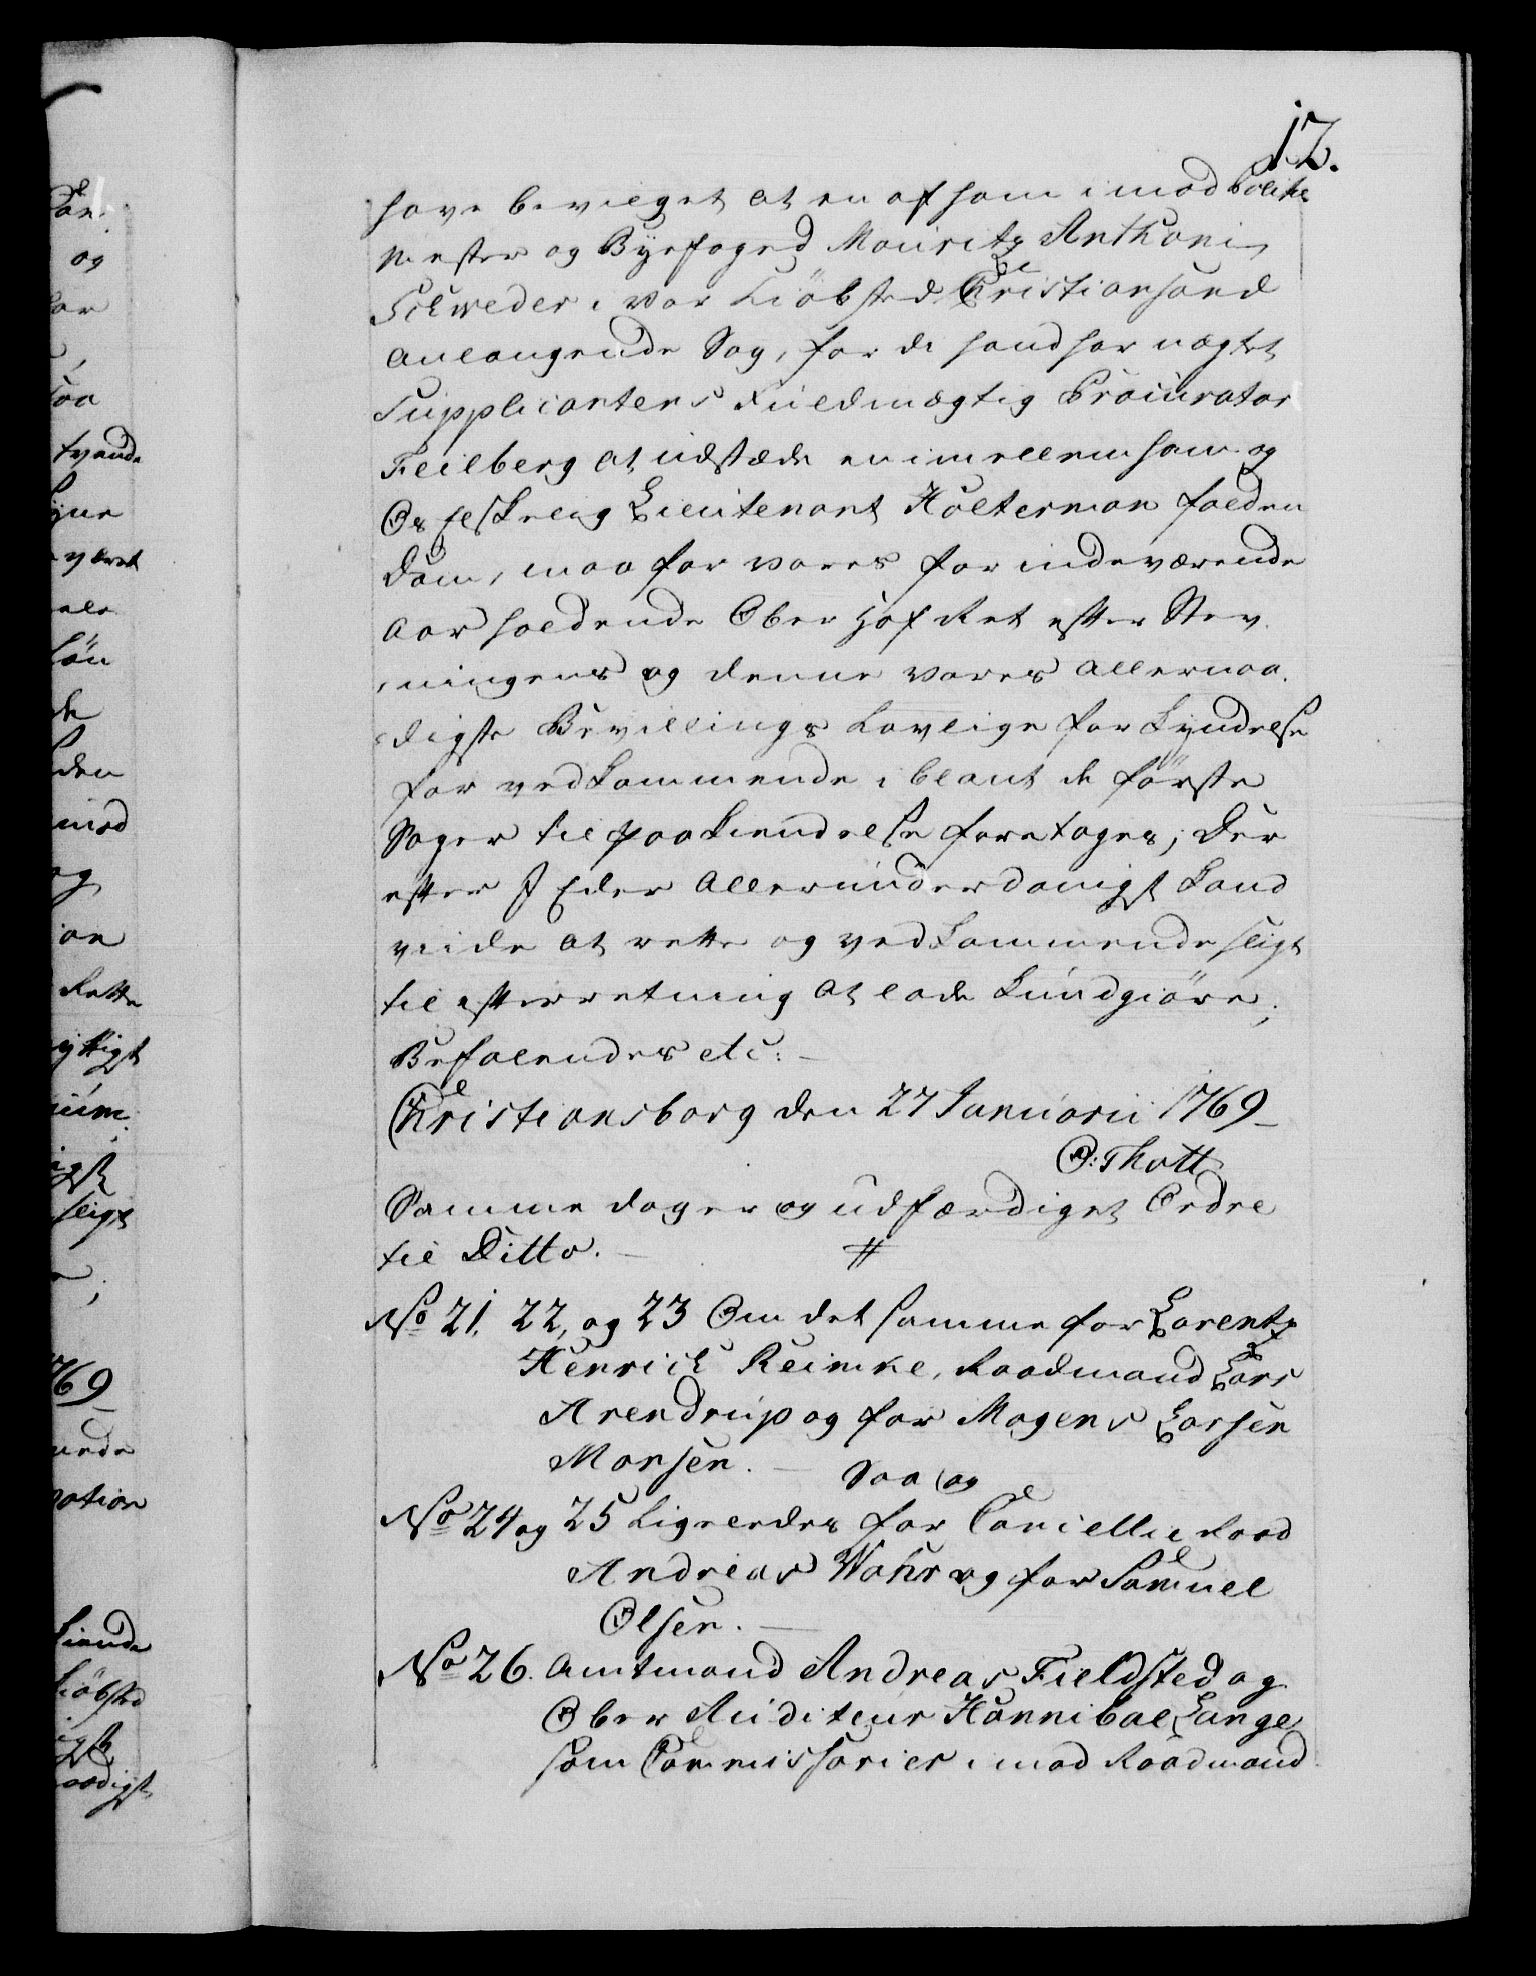 12.
have bevilget at en af ham imod Politie
mester og Byefoged Mouritz Anthoni
Schweder i vor Kiöbsted Christiansand
anlangende Sag, for de hand har nægtet
Supplicantens Fuldmægtig Procurator
Feilberg at udstæde en imellem ham og
Os Elskelig Lieutenant Holterman falden
Dom, maa for vores for indeværende
Aar holdende Ober Hof Ret efter Stev
ningens og denne vores allernaa
digste Bevillings lovlige forkyndelse
for vedkommende iblant de förste
Sager til paakiendelse foretages; Der
efter I Eder allerunderdanigst hand
viide at rette og vedkommende sligt
til efterretning at lade kundgiöre;
Befalendes etc:
Christiansborg den 27 Januarii 1769
O: Thott
Samme dag er og udfærdiget Ordre
til Ditto.
No 21, 22, og 23 Om det samme for Lorentz
Henrich Reimke, Raadmand Lars
Arendrup og for Mogens Larsen
Monsen. Saa og
No 24 og 25 Ligeledes for Cancellie Raad
Andreas Wahr og for Samuel
Olsen.
No 26. Amtmand Andreas Fieldsted og
Ober Auditeur Hannibal Lange
som Commissarier imod Raadmand